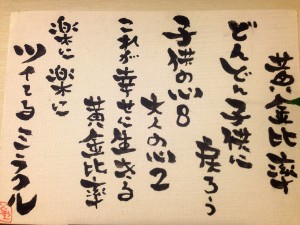 黄金比率
どんどん子供に
戻ろう
子供の心8
大人の心2
これが幸せに生きる
黄金比率
楽に楽に
ツイてるミラクル